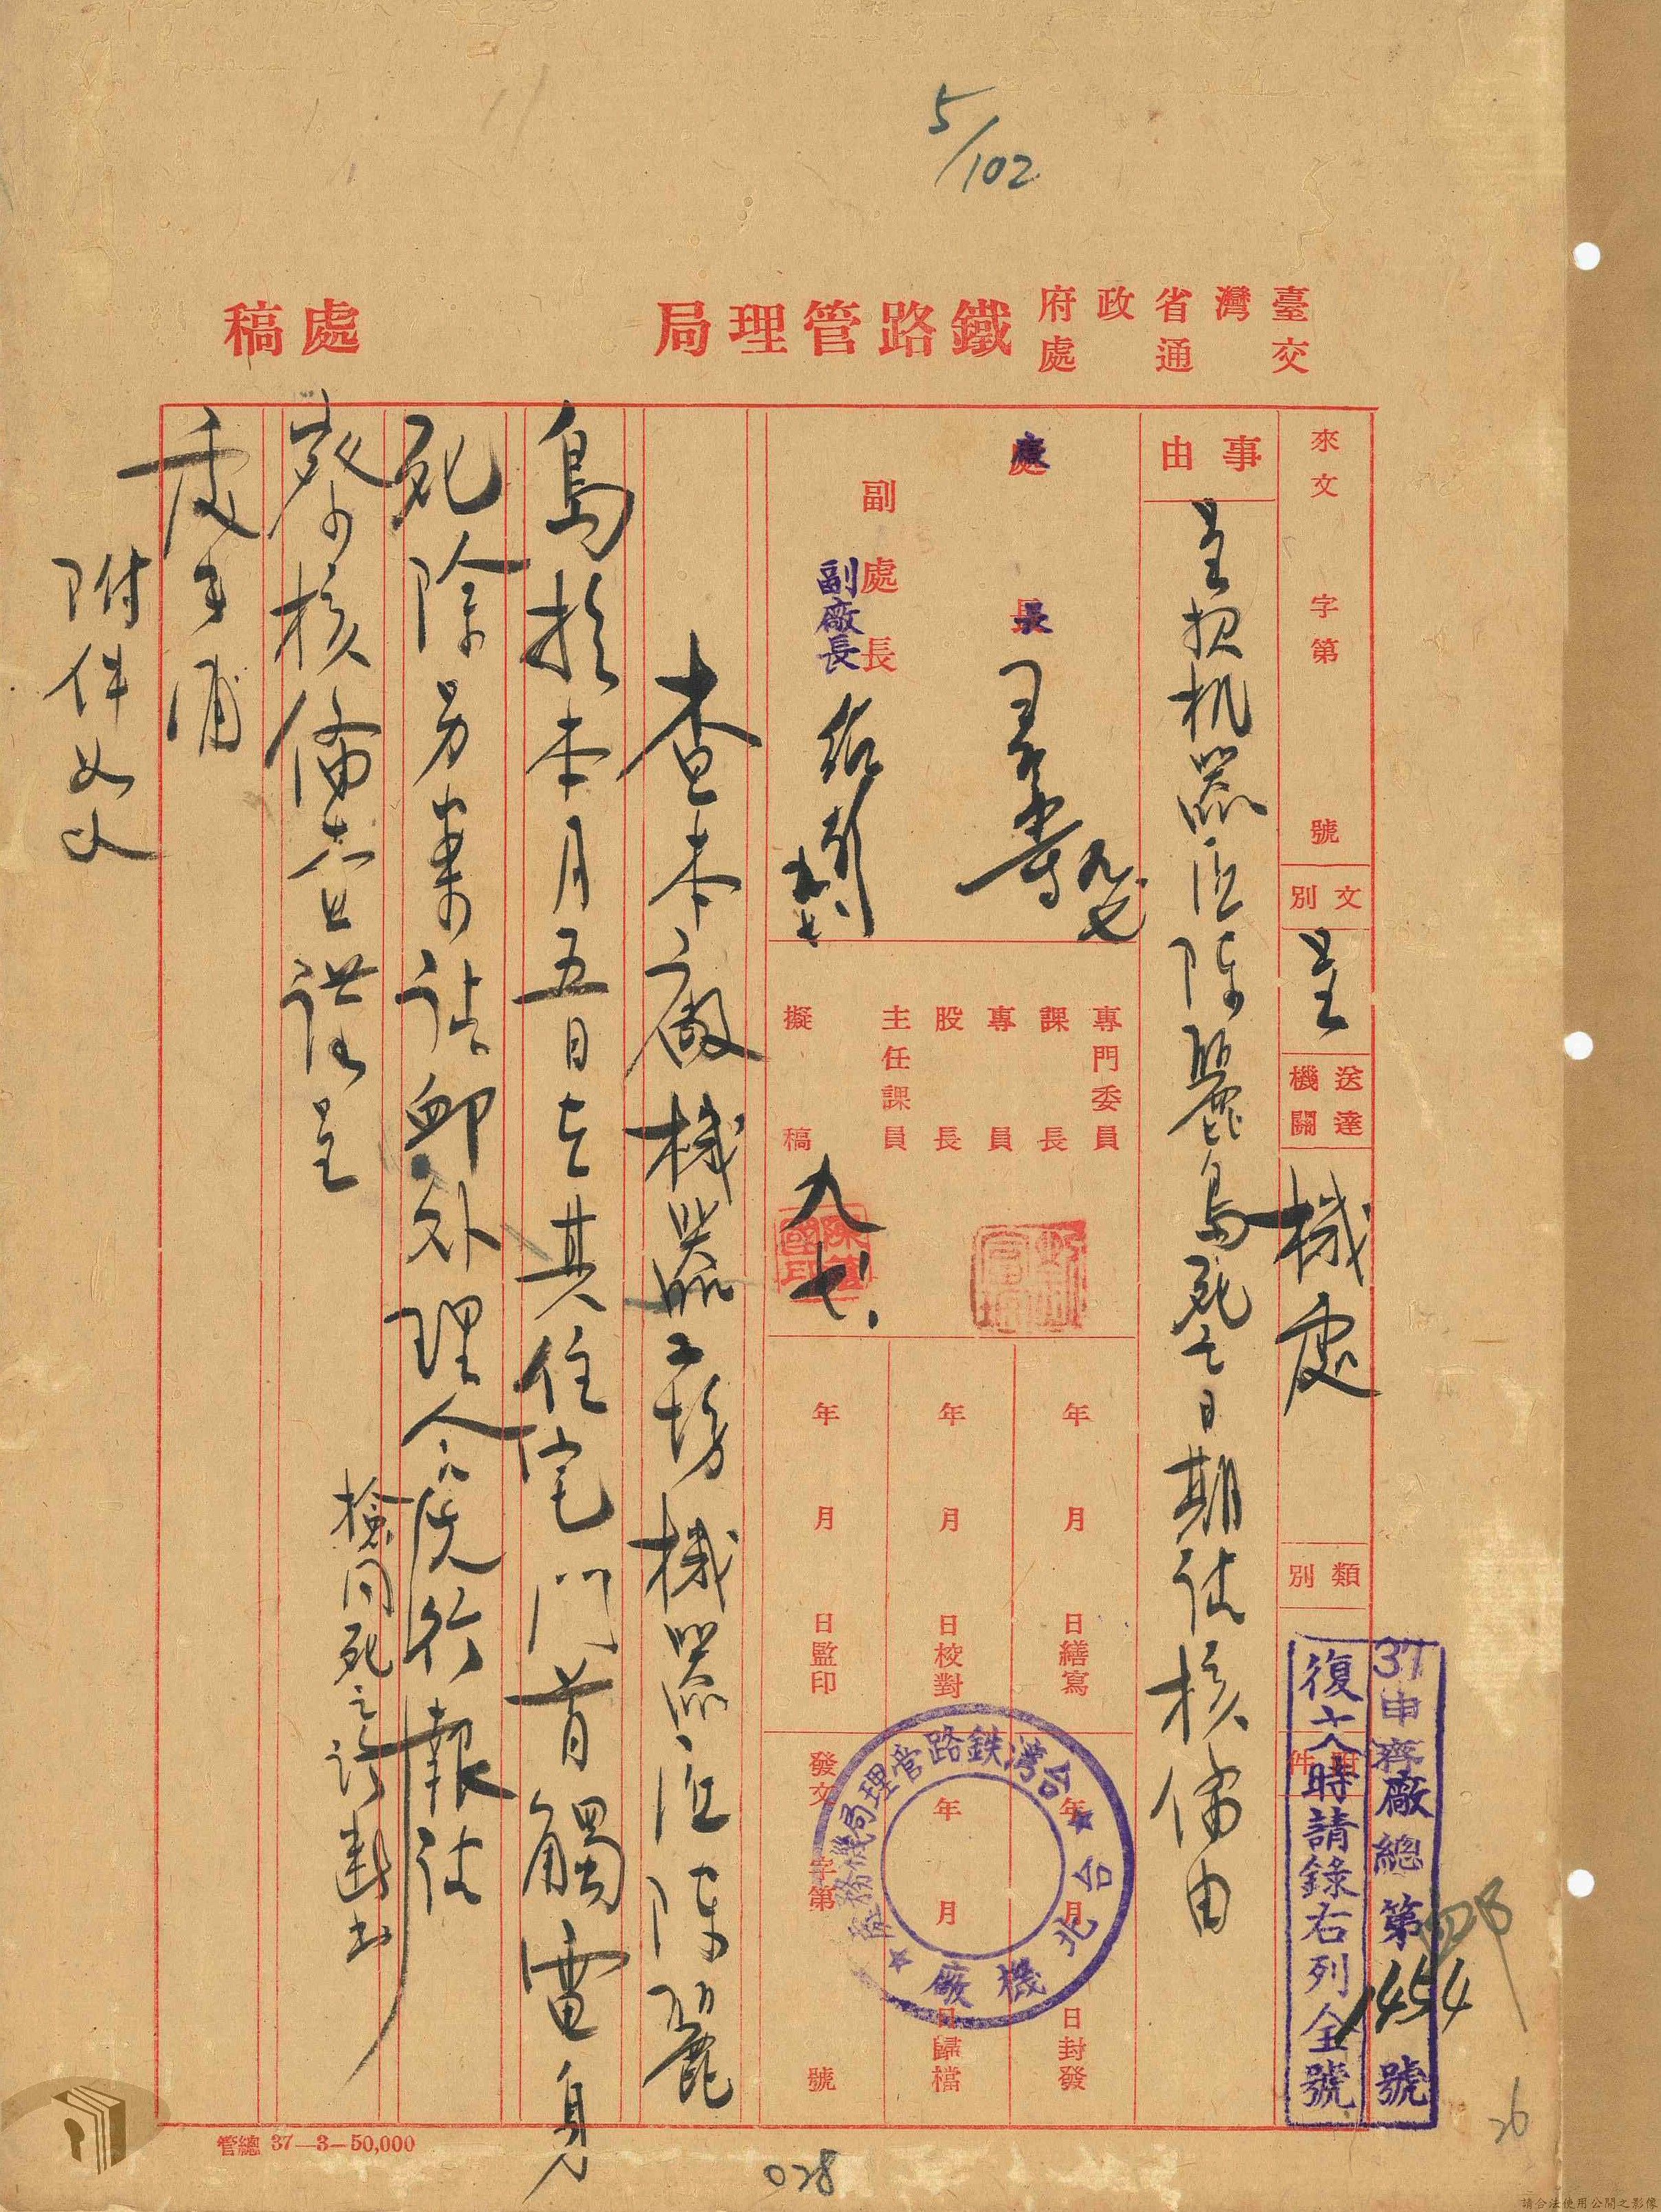 5/102
臺灣省政府交通處 鐵路管理局 處稿
來文 字第 號
文別 呈
送達機關 機處
類別
附件
37申齊廠總第1454號
復文時請錄右列全號
事由 呈報机器匠陳麗鳥死亡日期請核備由
處長 廠長
九七
副處長 副廠長
九七
專門委員
課長
專員
股長
主任課員
擬稿 九七
年 月 日繕寫
年 月 日校對
年 月 日監印
年 月 日封發
年 月 日歸檔
發文 字第 號
台灣鉄路管理局機務處
台北機廠
查本廠機器工場機器匠陳麗
鳥於本月五日在其住宅門首觸電身
死除另案請卹外理合先行報請
檢同死亡診斷書
察核備查謹呈
處長
附件如文
管總 37—3—50,000
028
26
請合法使用公開之影像